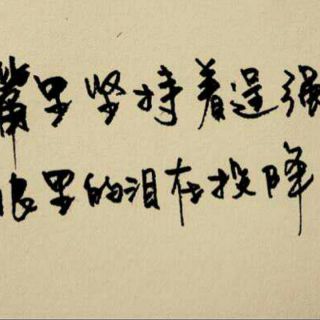 嘴里坚持着逞强
眼里的泪在投降